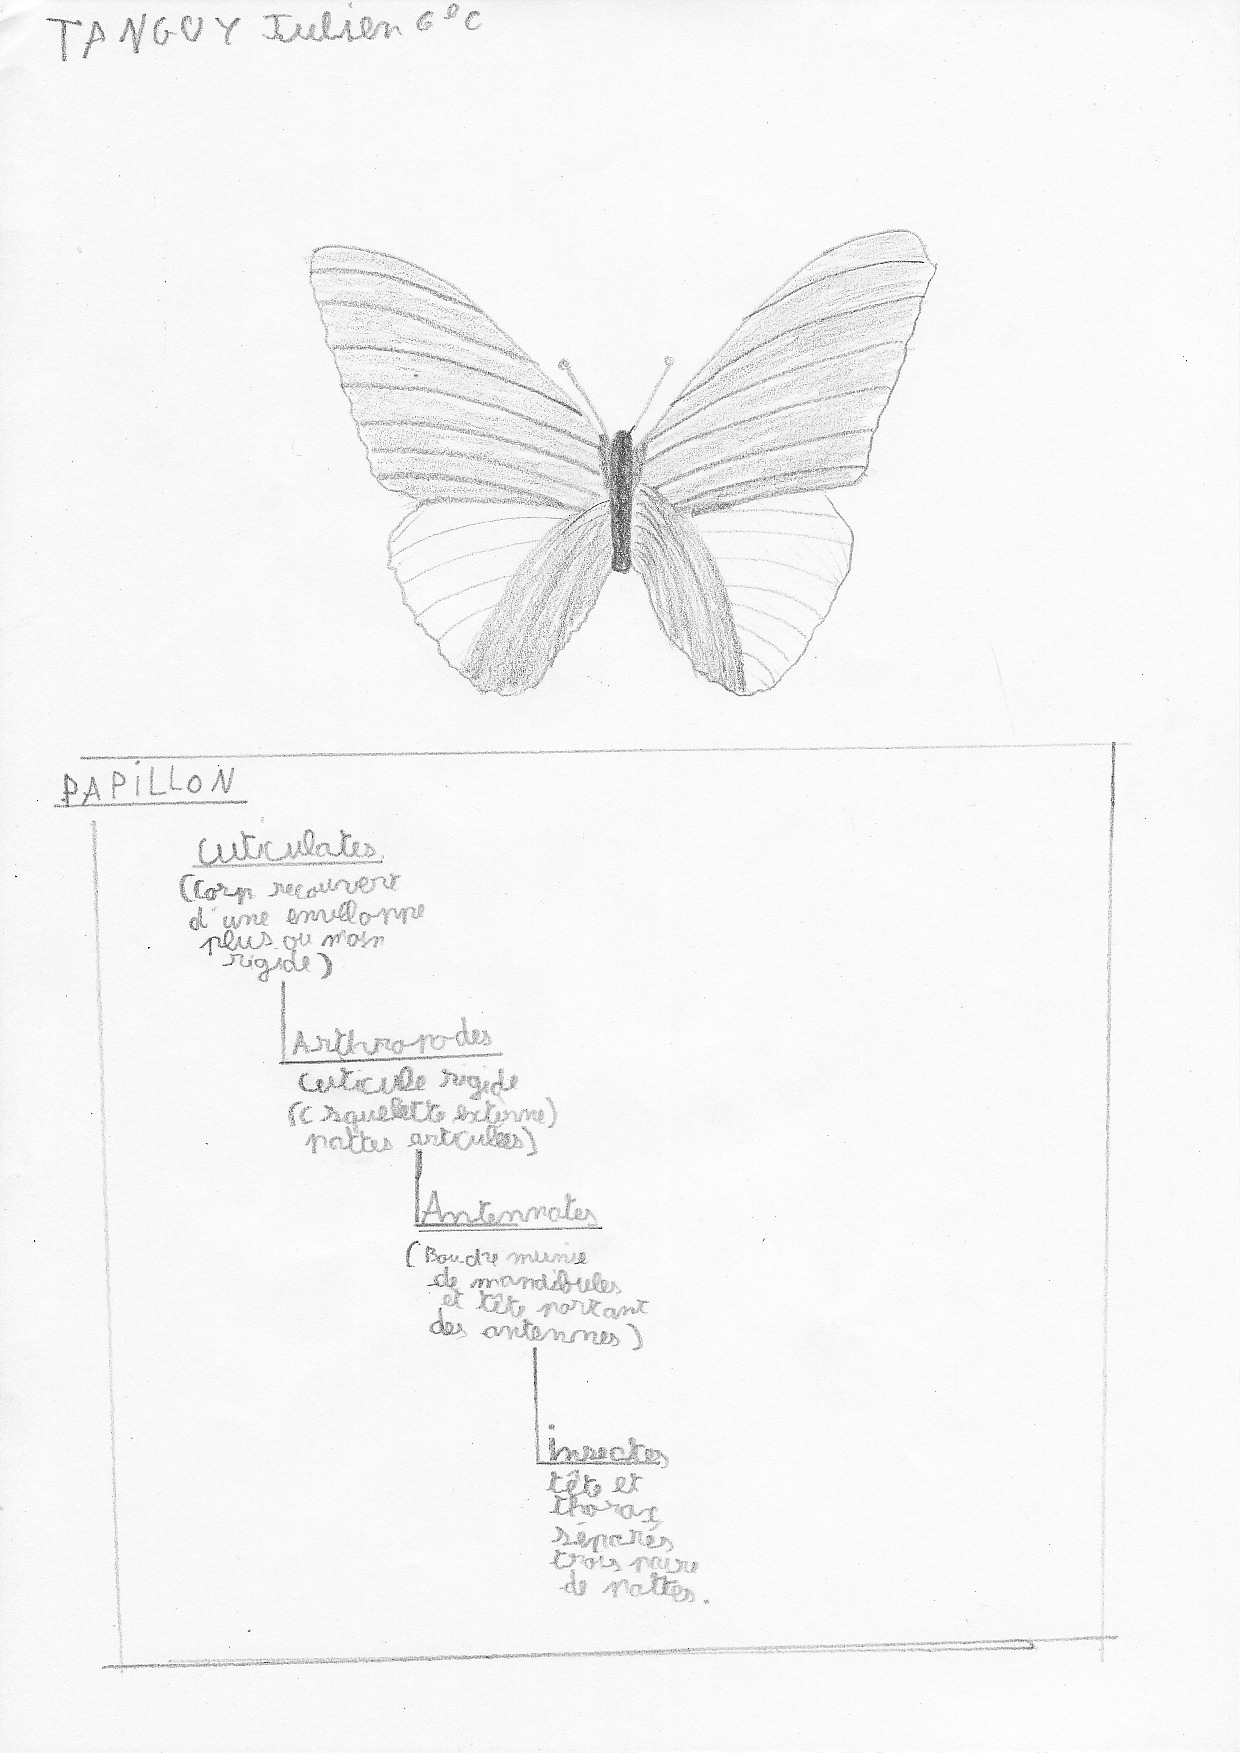 TANGUY Julien 6e C
PAPiLLON
Cuticulates
(Corp recouvert
d'une envellonpe
plus ou moin
rigide)
Arthropodes
Cuticule rigide
(c squelette externe)
pattes articulées)
Antennates
(Boudre munie
de mandibules
et tête portant
des antennes)
insectes
tête et
thorax
séparés
trois paire
de pattes.